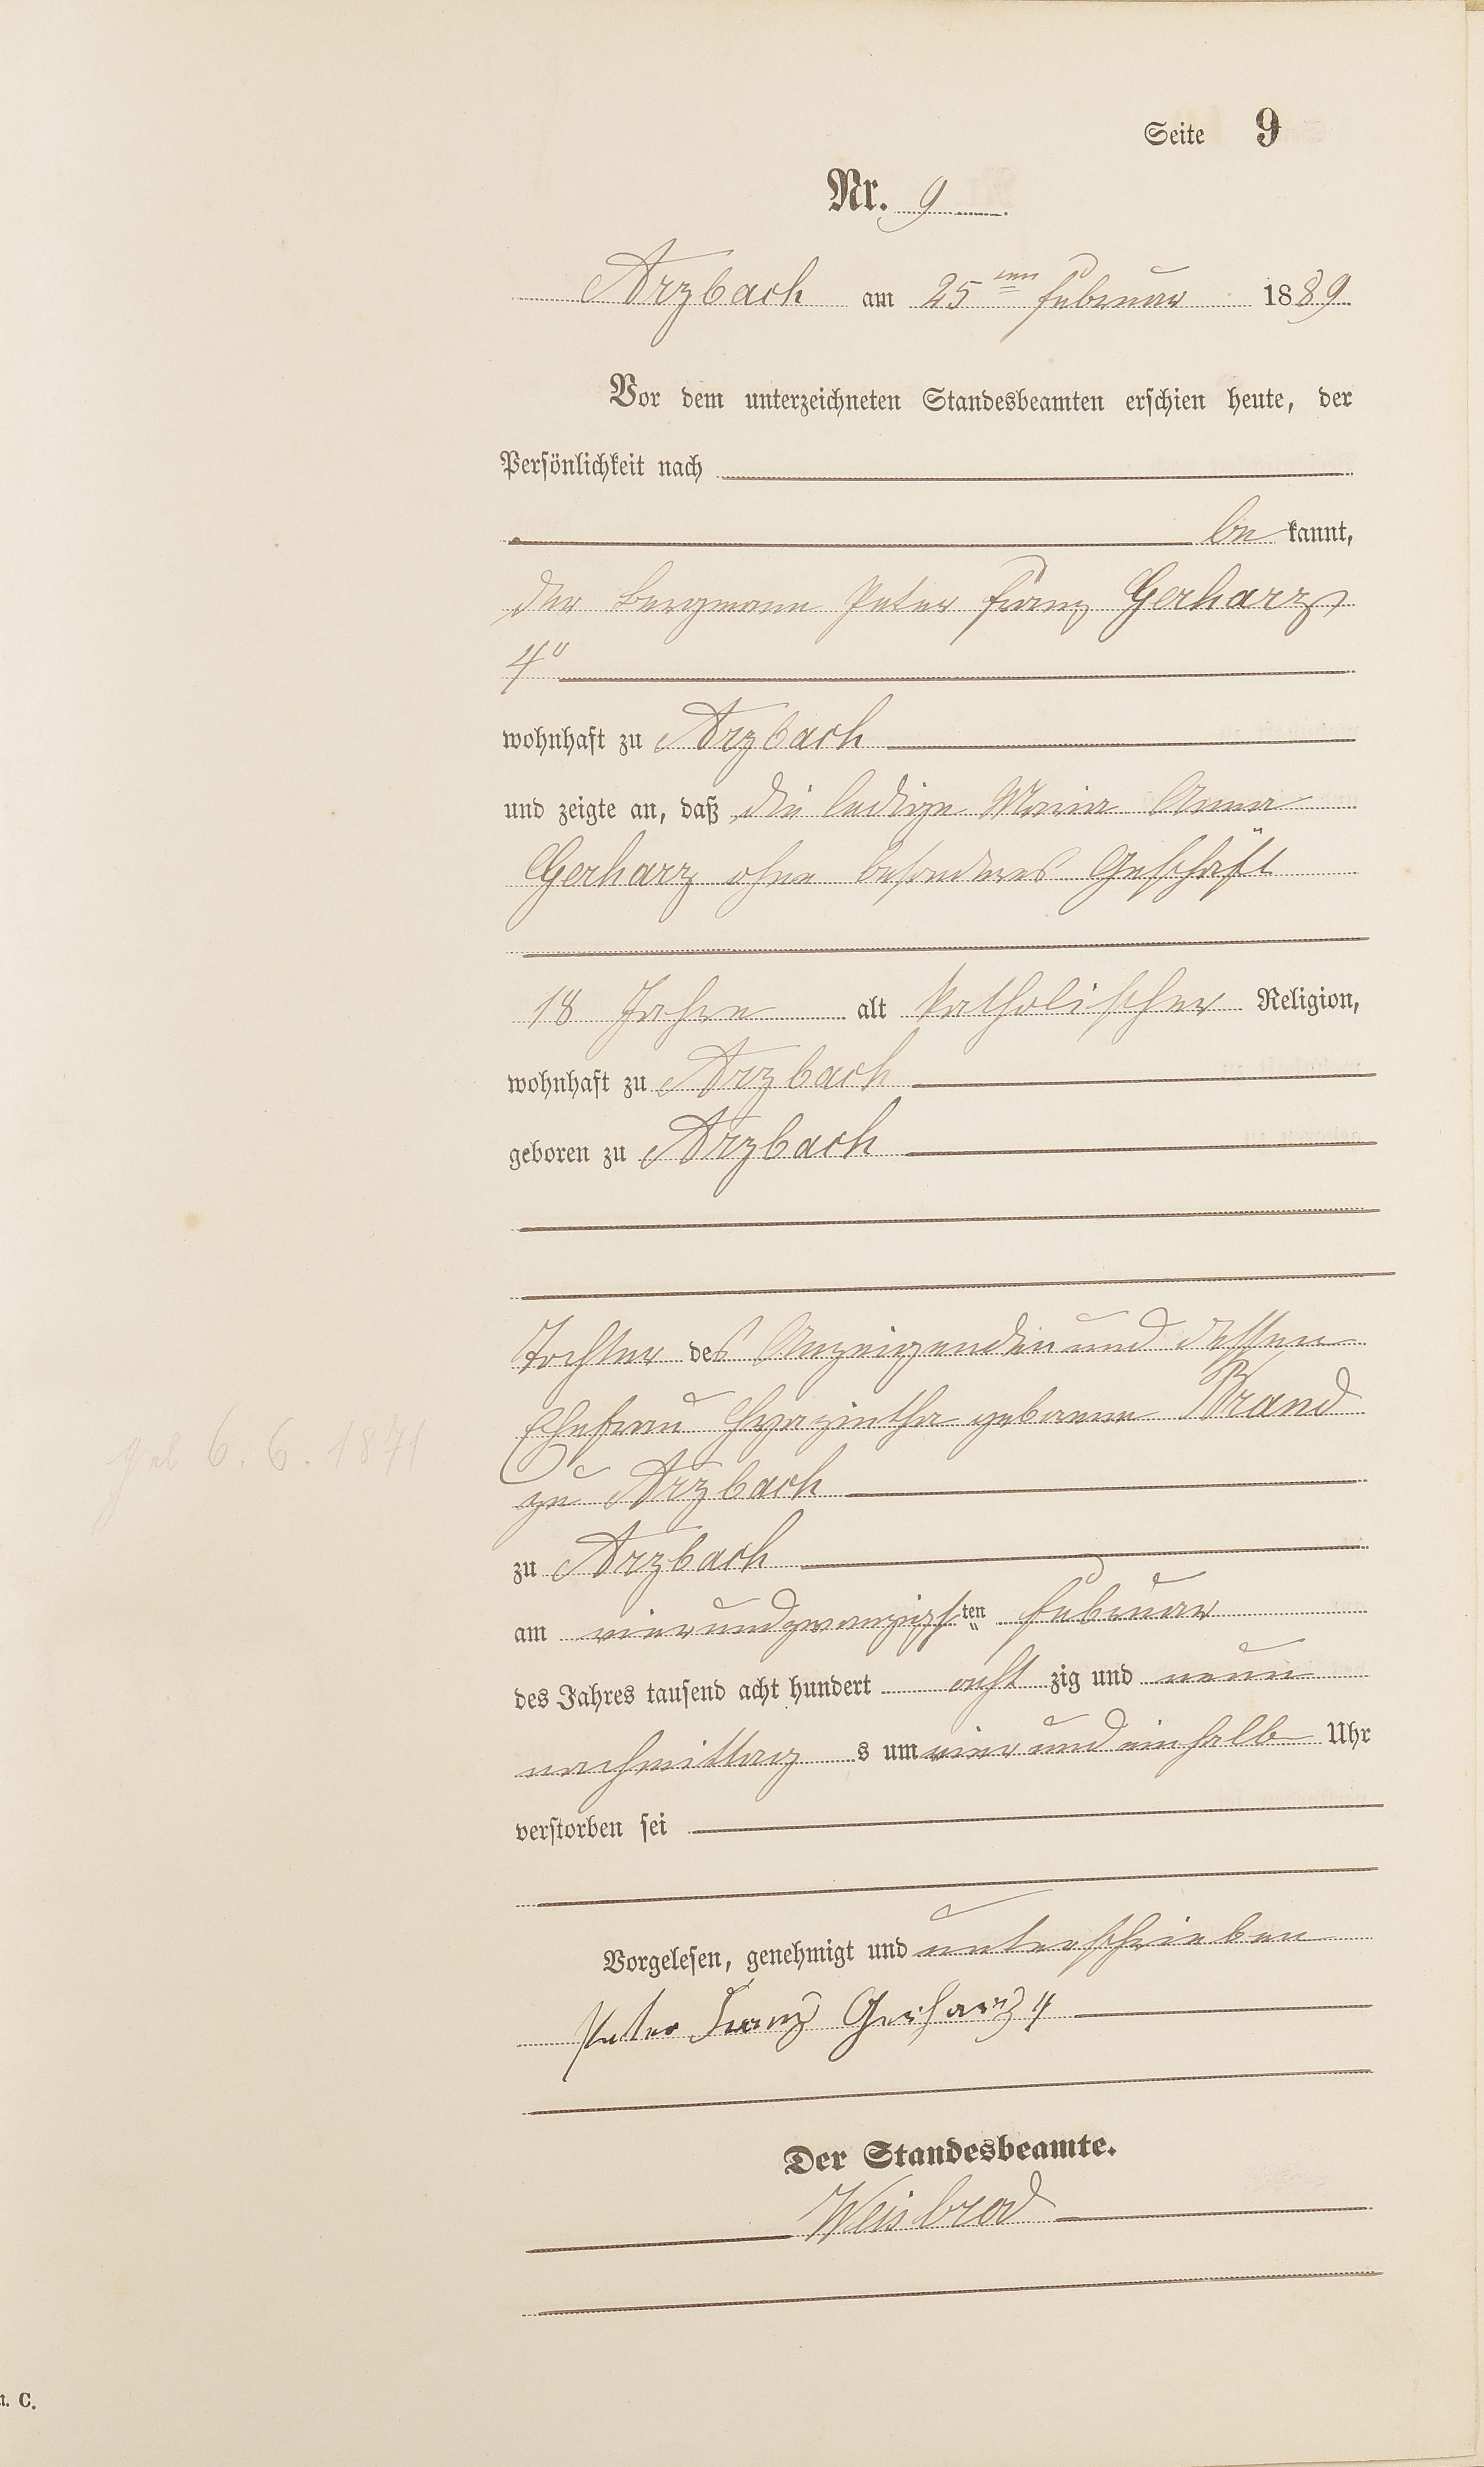 Seite 9
Nr. 9
Arzbach am 25ten Februar 1889
Vor dem unterzeichneten Standesbeamten erschien heute, der
Persönlichkeit nach
be kannt,
der Bergmann Peter Franz Gerharz
4"
wohnhaft zu Arzbach
und zeigte an, daß die ledige Maria Anna
Gerharz ohne besonderes Geschäft
18 Jahre alt katholischer Religion,
wohnhaft zu Arzbach
geboren zu Arzbach
Tochter des Anzeigenden und dessen
Ehefrau Hyazintha geborene Brand
geb 6. 6. 1871
zu Arzbach
zu Arzbach
am vierundzwanzigsten Februar
des Jahres tausend acht hundert acht zig und neun
nachmittag s um vier und ein halb Uhr
verstorben sei
Vorgelesen, genehmigt und unterschrieben
Peter Franz Gerharz 4
Der Standesbeamte.
Weisbrod
C.